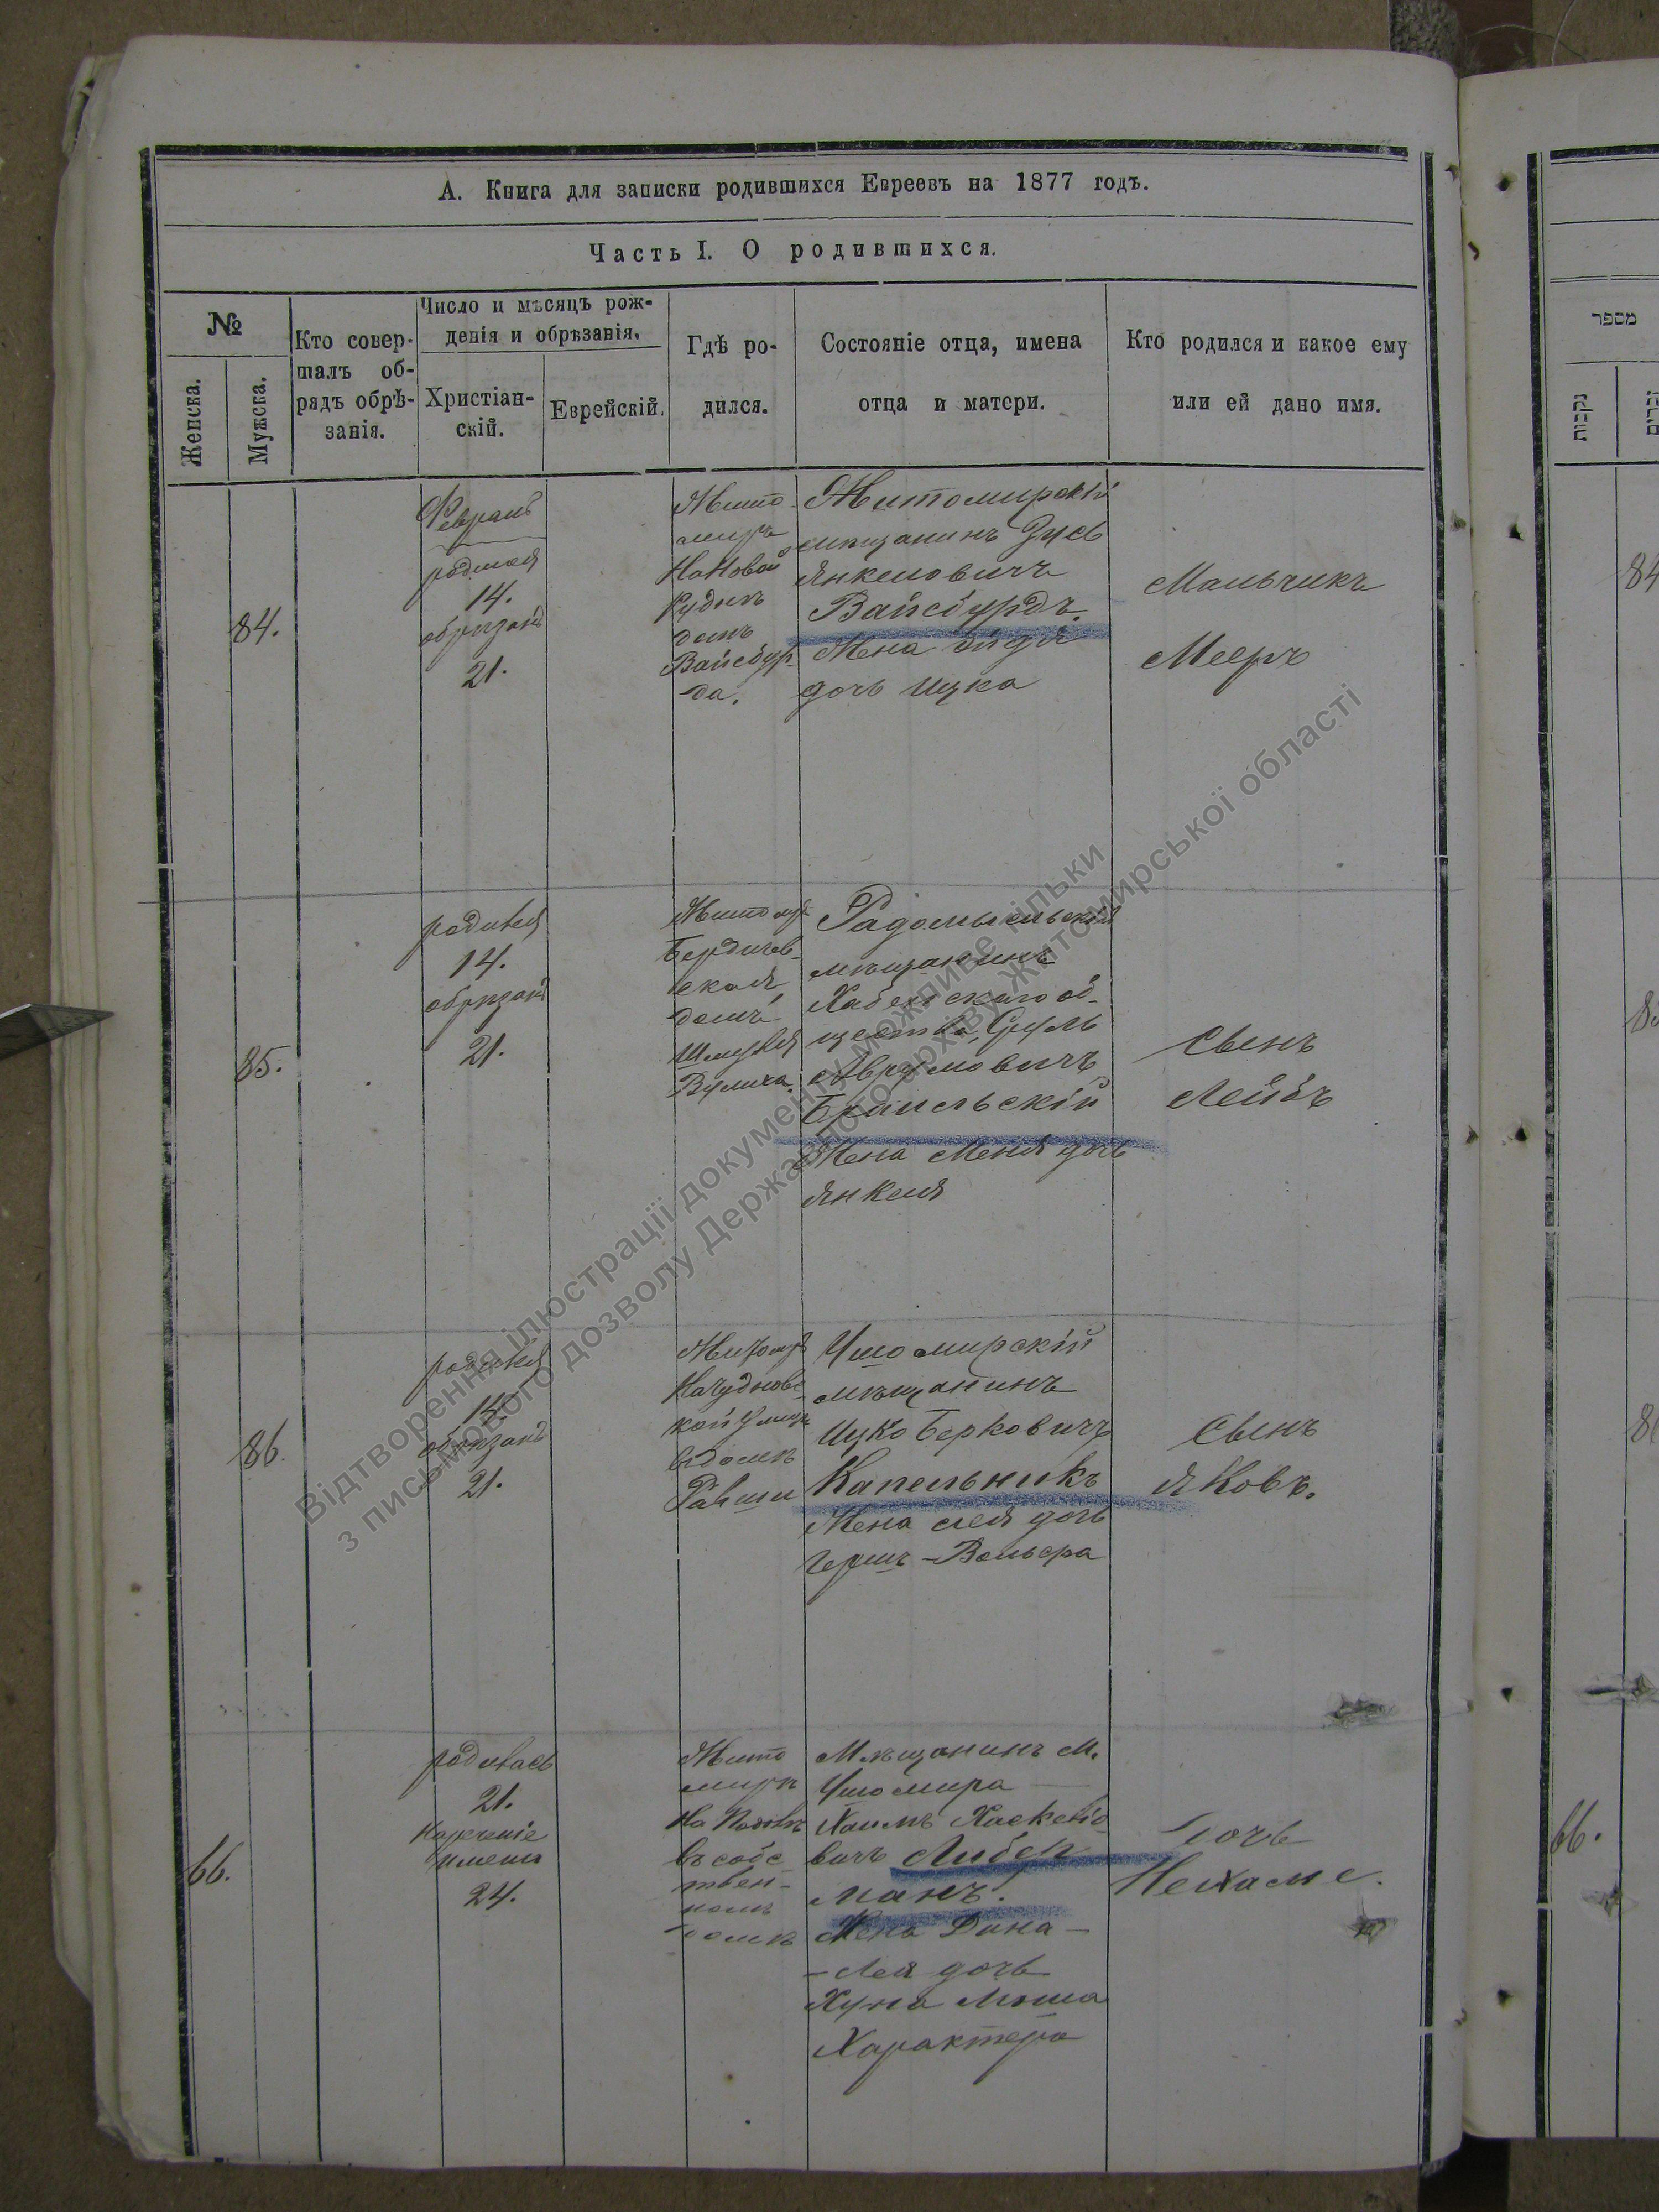 А. Книга для записки родившихся Евреевъ на 1877 годъ.
Часть I. О родившихся.
№
Женска.
Мужска.
Кто совер-
шалъ об-
рядъ обрѣ-
занія.
Число и мѣсяцъ рож-
денія и обрѣзанія.
Христіан-
скій.
Еврейскій.
Гдѣ ро-
дился.
Состояніе отца, имена
отца и матери.
Кто родился и какое ему
или ей дано имя.
84.
Февраль
родился
14.
обрѣзанъ
21.
Жито-
миръ
На Новой
Руднѣ
домъ
Вайсбур-
да.
Житомирскій
мѣщанинъ Зусь
Янкелович
Вайсбурдъ.
Жена
дочь Ицка
Мальчикъ
Мееръ
85.
родился
14.
обрѣзанъ
21.
Житомир
Бердичев-
ская,
домъ
Шмуля
Радомысльскій
мѣщанинъ
Хабенскаго об-
щества, Сруль
Аврумовичъ
Жена Меня дочь
Янкеля
Сынъ
Лейбъ
86.
родился
14.
обрѣзанъ
21.
Житомръ
На Чуднов-
кой улицѣ
въ домѣ
Раиши
Житомирскій
мѣщанинъ
Ицко Берковичъ
Капельникъ
Жена Лея дочь
Герш-Вольера
Сынъ
Яковъ.
66.
родилась
21.
Нареченіе
имени
24.
Жито
мирѣ
На Подолѣ
въ собс
твен-
номъ
домѣ
Мѣщанинъ М.
Житомира
Хаимъ Хаскеліо-
вичъ Либер
манъ.
Жена Дина-
-Лея дочь
Хуна Моша
Характера
Дочь
Нехаме.
מספר
נקבות
זכרים
84
8
86
66.
Відтворення ілюстрації документу можливе тільки
з письмового дозволу Державного архіву Житомирської області